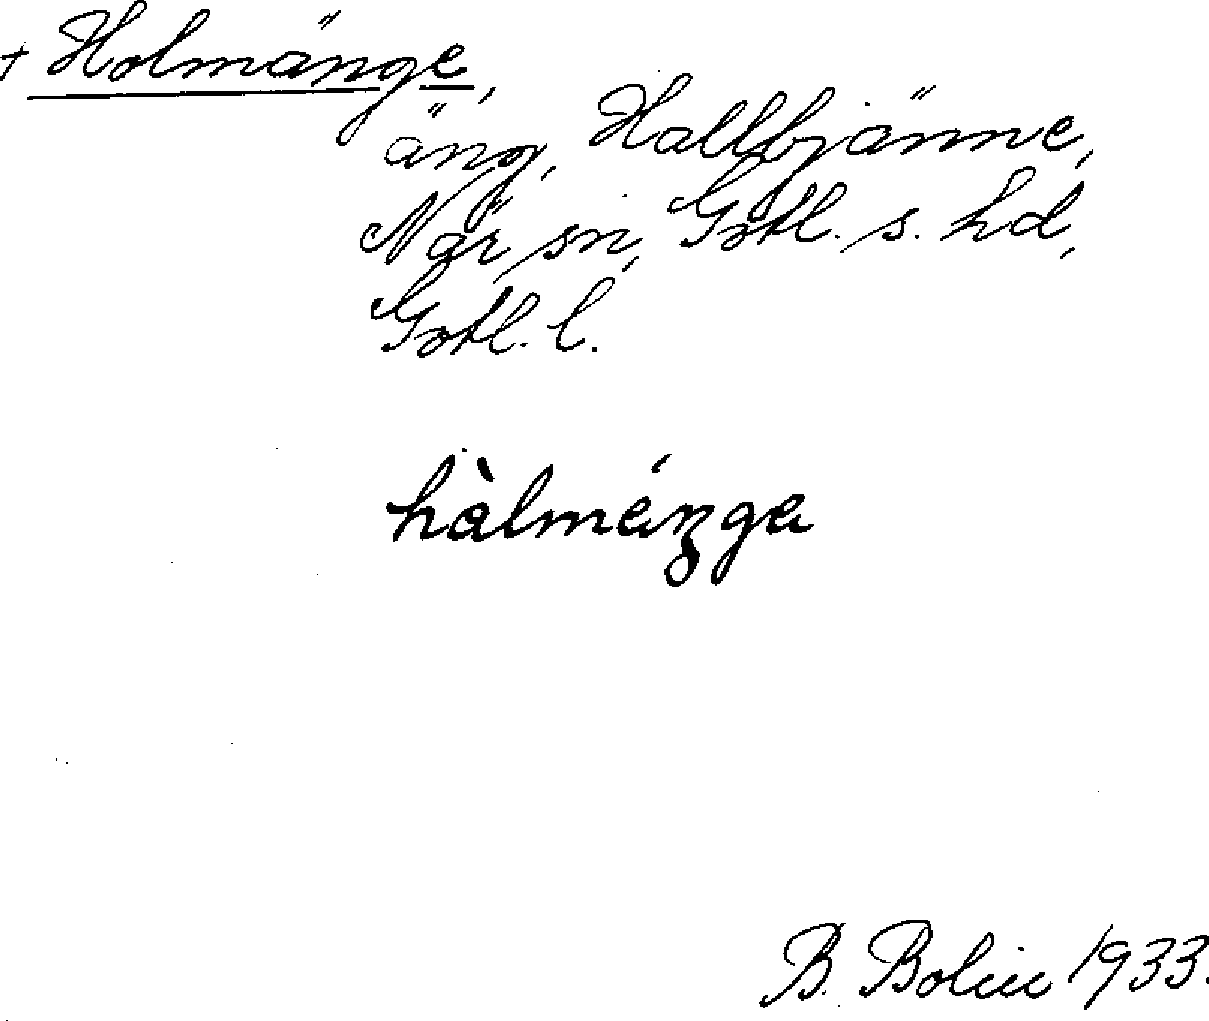 + Holmänge,
äng, Hallbjänne,
När sn, Gotl. s. hd,
Gotl. l.
hàlméŋga
B. Bolin 1933.